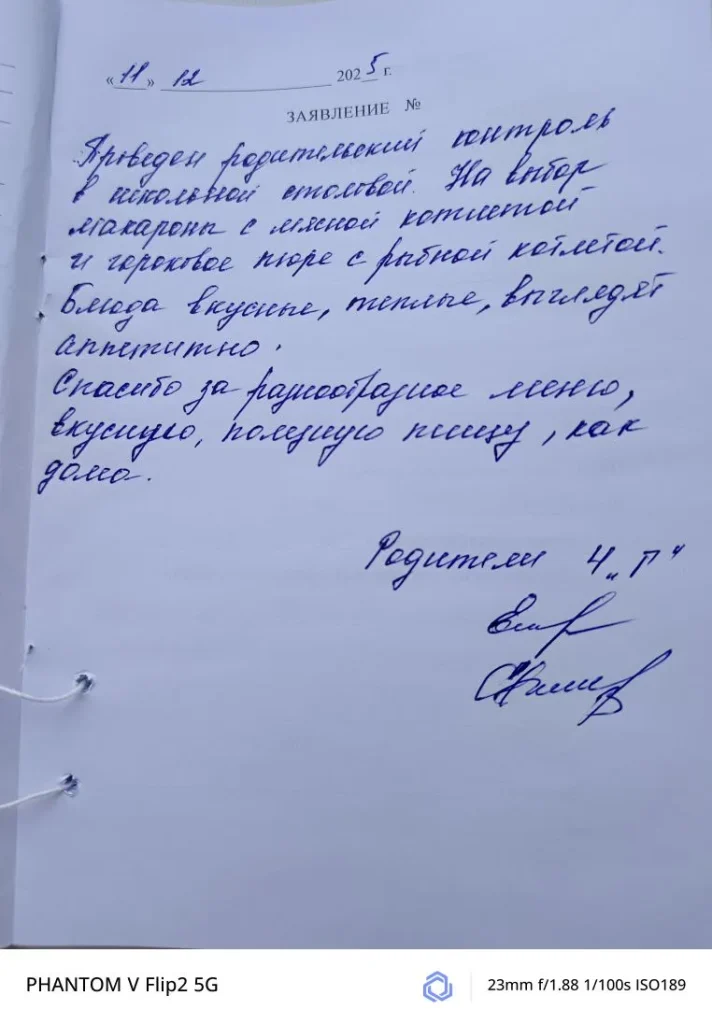 «11» 12 2025 г.
ЗАЯВЛЕНИЕ №
Проведен родительский контроль
в школьной столовой. На выбор
макароны с мясной котлетой
и гороховое пюре с рыбной котлетой.
Блюда вкусные, теплые, выглядят
аппетитно.
Спасибо за разнообразное меню,
вкусную, полезную пищу, как
дома.
Родители 4 „Г"
PHANTOM V Flip2 5G
23mm f/1.88 1/100s ISO189